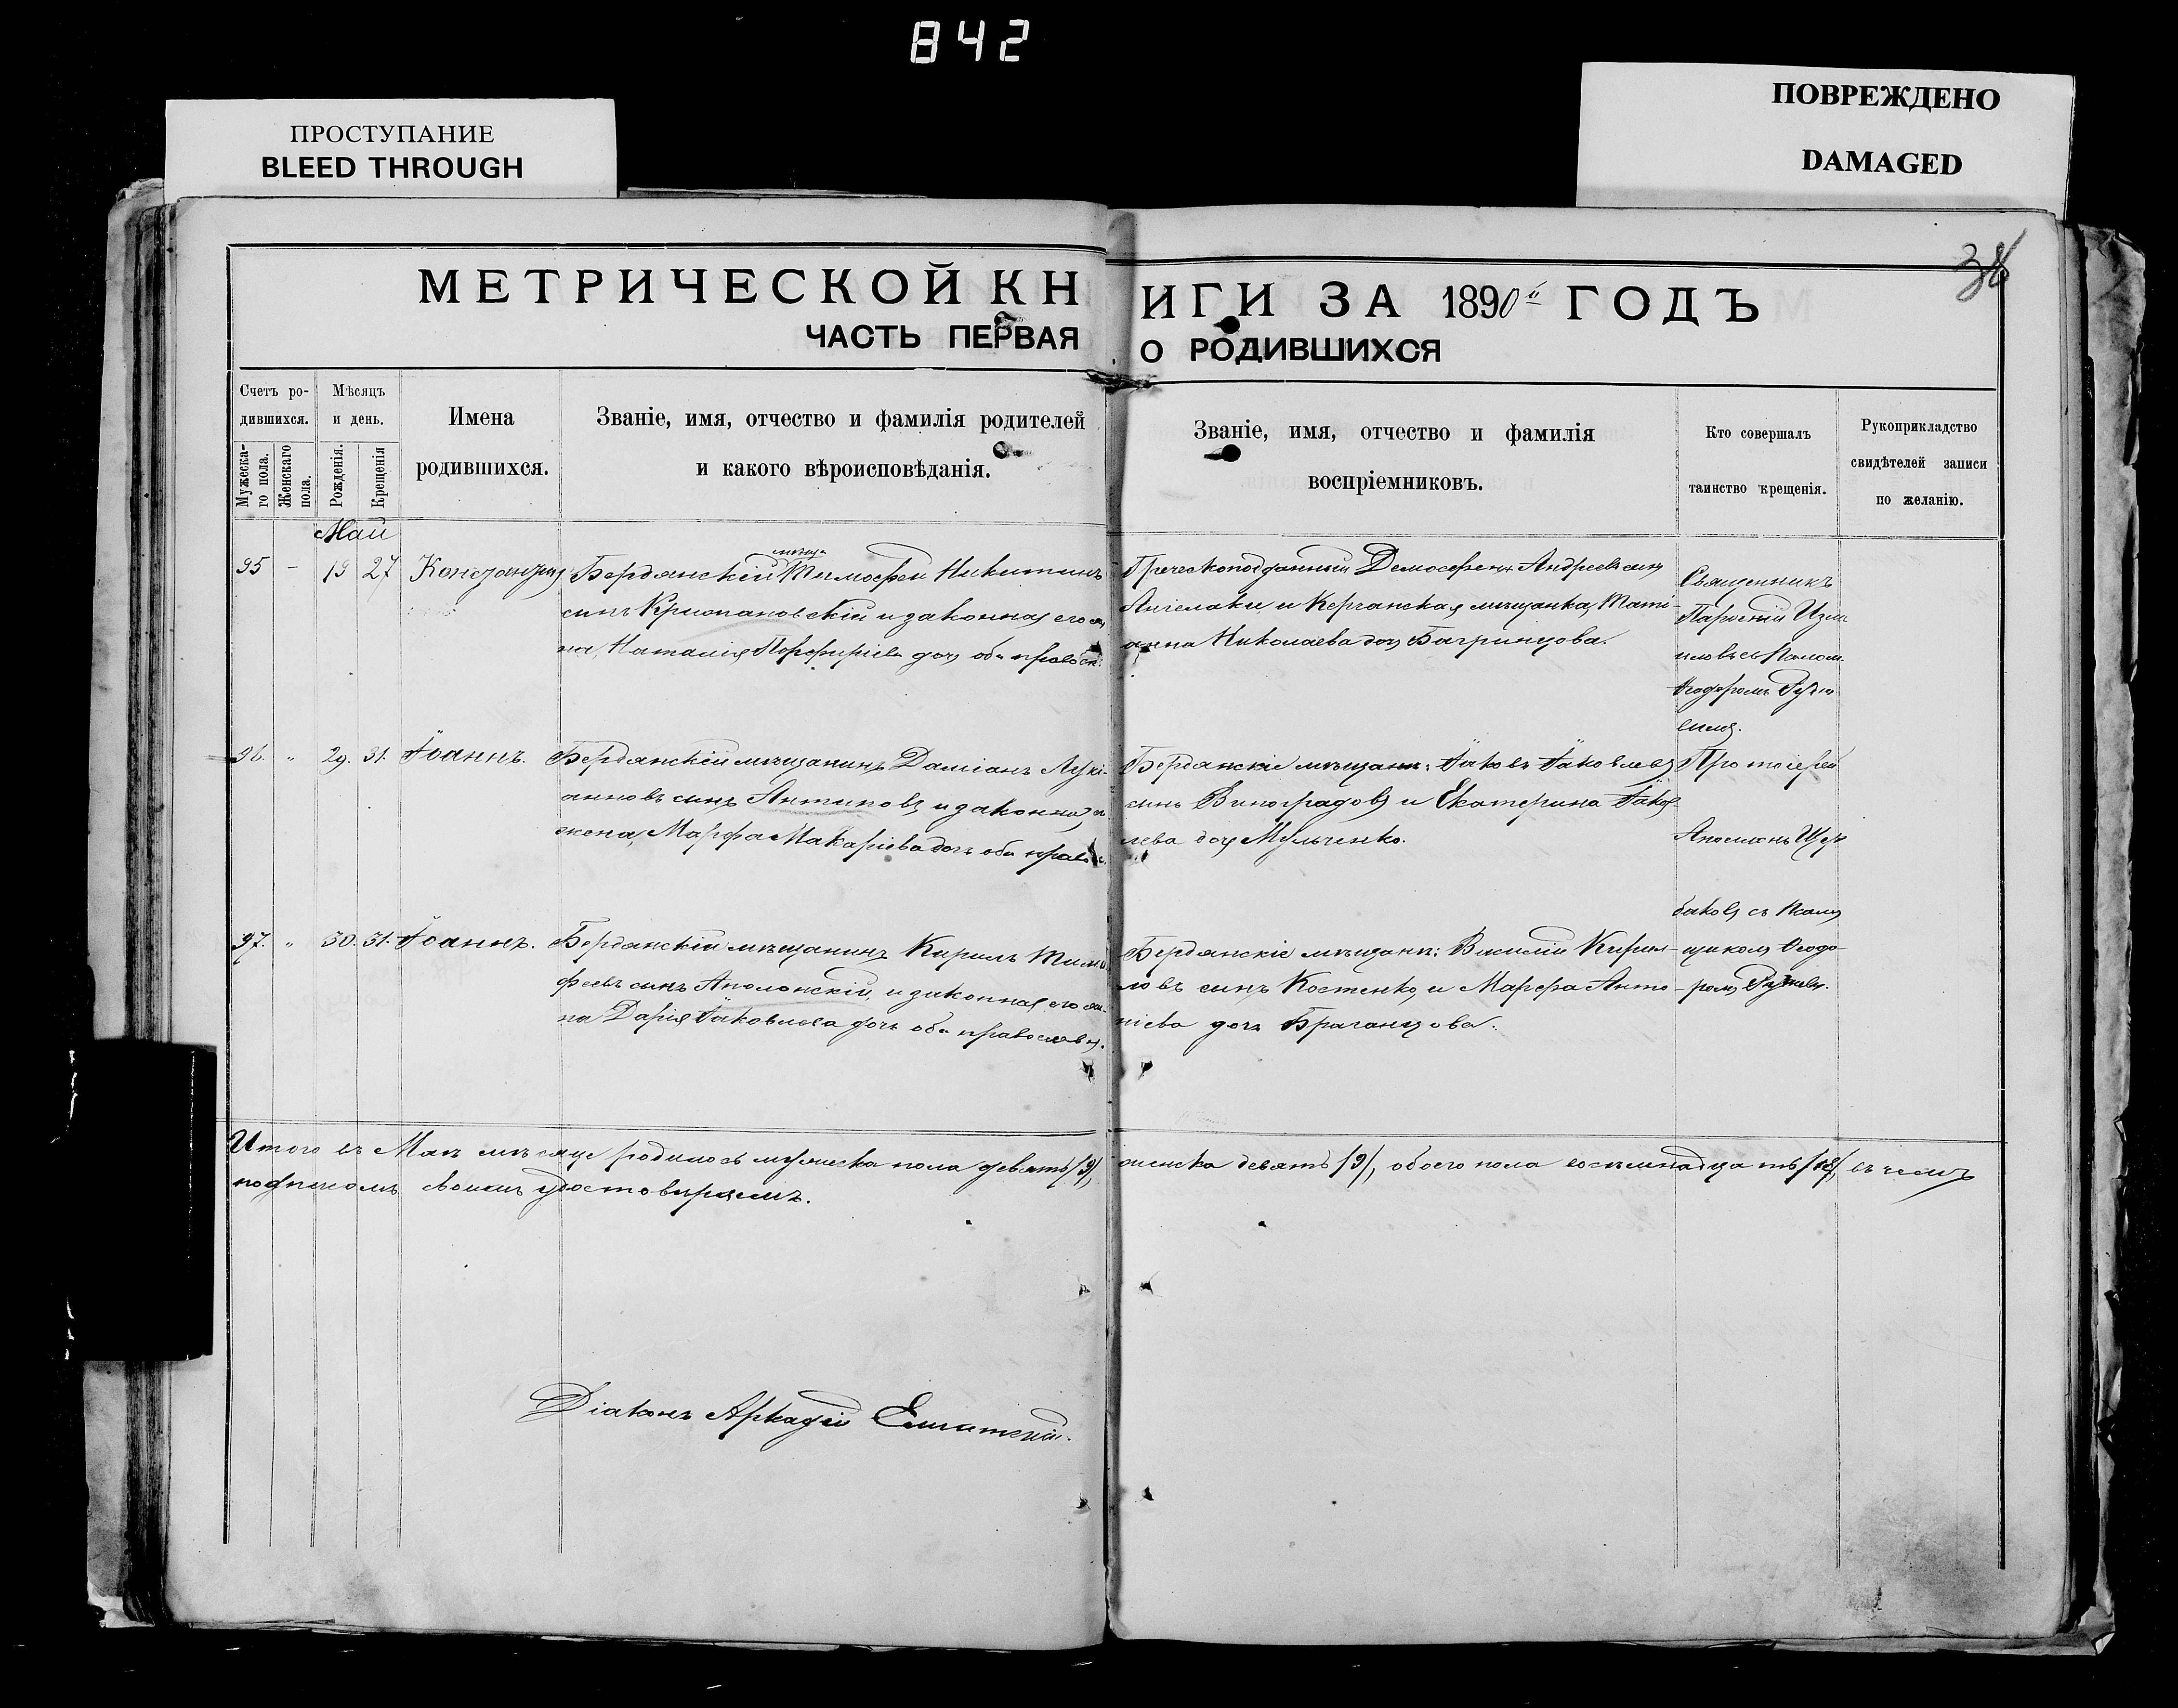 842
ПРОСТУПАНИЕ
BLEED THROUGH
ПОВРЕЖДЕНО
DAMAGED
38
МЕТРИЧЕСКОЙ КНИГИ ЗА 1890й ГОДЪ
ЧАСТЬ ПЕРВАЯ О РОДИВШИХСЯ
Счетъ ро-
дившихся.
Мужеска-
го пола.
Женскаго
пола.
Мѣсяцъ
и день.
Рожденія.
Крещенія
Имена
родившихся.
Званіе, имя, отчество и фамилія родителей
и какого вѣроисповѣданія.
Званіе, имя, отчество и фамилія
воспріемниковъ.
Кто совершалъ
таинство крещенія.
Рукоприкладство
свидѣтелей записи
по желанію.
Май
95 - 19 27 Константинъ
Бердянскій мѣща. Тимофей Никитинъ
сынъ Крижановскій и законная его же
на, Наталія Порфиріева дочь оба правосл.
Греческоподданный Демосфенъ Андреевъ сынъ
Ангелаки и Керчанская мѣщанка, Тати-
анна Николаева дочь Багринцова.
Священникъ
Парѳеній Изма
иловъ съ Псалом.
Ѳеодоромъ
96. " 29. 31. Іоаннъ.
Бердянскій мѣщанинъ Даміанъ Лукі-
анновъ сынъ Антиповъ и законная
жена, Марфа Макаріева дочь оба правос.
Бердянскіе мѣщане: Іаковъ Іаковлевъ
сынъ Виноградовъ и Екатерина Іаков
лева дочь Мульченко.
Протоіерей
Аполлонъ Щер
баковъ съ Псалм
щикомъ Ѳеодо-
ромъ
97. " 30. 31. Іоаннъ.
Бердянскій мѣщанинъ Кирилъ Тимо
феевъ сынъ Аполонскій, и законная его же
на Дарія Іаковлева дочь оба православн.
Бердянскіе мѣщане: Василій Кирил-
ловъ сынъ Костенко, и Марфа Анто-
ніева дочь Браганцова.
Итого въ Маѣ мѣсяце родилось мужеска пола девять /9/, женска девять /9/, обоего пола восемнадцать /18/, въ чемъ
подписомъ своимъ удостовѣряемъ.
Діаконъ Аркадій